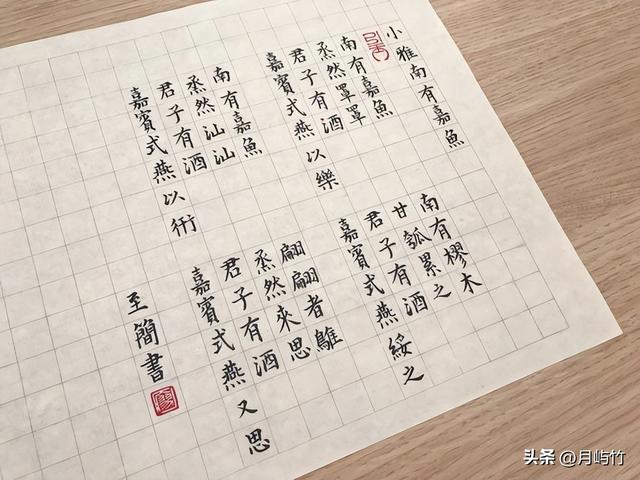 小雅南有嘉魚
南有嘉魚
烝然罩罩
君子有酒
嘉賓式燕以樂
南有嘉魚
烝然汕汕
君子有酒
嘉賓式燕以衎
南有樛木
甘瓠累之
君子有酒
嘉賓式燕綏之
翩翩者鵻
烝然來思
君子有酒
嘉賓式燕又思
至簡書
头条 @月屿竹